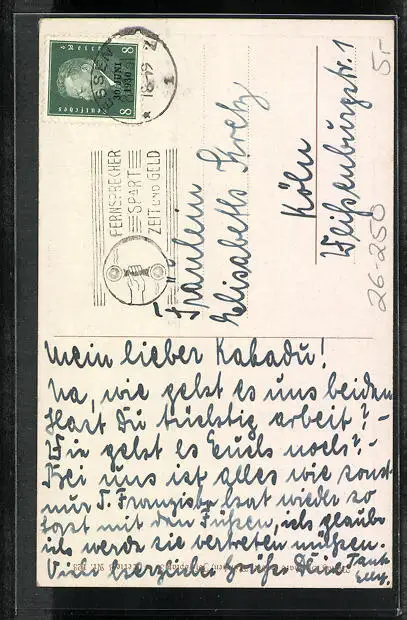 Mein lieber Kakadu!
Na, wie geht es uns beiden
Hast Du tüchtig arbeit? –
Wie geht es Euch noch? –
Bei uns ist alles wie sonst
nur T. Franziska hat wieder so
mit den Füßen, ich glaube
ich werde sie vertreten müssen.
Viele herzliche Grüße Deine Tante
Elly.
Fräulein
Elisabeth
Köln
Weißenburgstr. 1
FERNSPRECHER
SPART
ZEIT UND GELD
ESSEN
18-19
8 8
Deutsches Reich
30. JUNI
1930
5,-
26-250